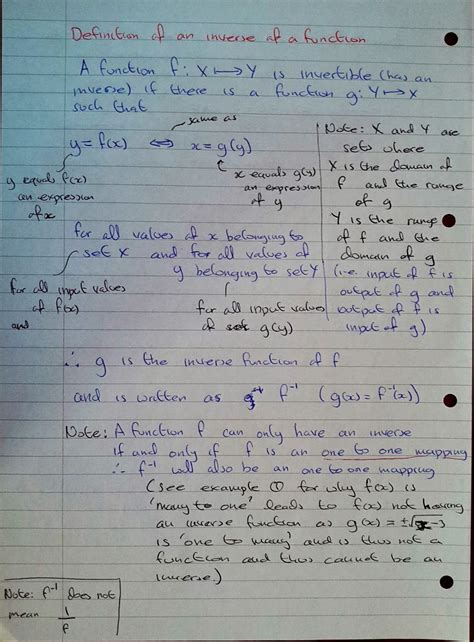 Definition of an inverse of a function
A function f: X ↦ Y is invertible (has an
inverse) if there is a function g: Y ↦ X
such that
same as
y = f(x) ⇔ x = g(y)
y equals f(x)
an expression
of x
x equals g(y)
an expression
of y
Note: X and Y are
sets where
X is the domain of
f and the range
of g
Y is the range
of f and the
domain of g
(i.e. input of f is
output of g and
output of f is
input of g)
for all values of x belonging to
set X and for all values of
y belonging to set Y
for all input values
of f(x)
and
for all input values
of g(y)
∴ g is the inverse function of f
and is written as f⁻¹ (g(x) = f⁻¹(x))
Note: A function f can only have an inverse
if and only if f is an one to one mapping
∴ f⁻¹ will also be an one to one mapping
(see example ① for why f(x) is
'many to one' leads to f(x) not having
an inverse function as g(x) = ±√x-3
is 'one to many' and is thus not a
function and thus cannot be an
inverse.)
Note: f⁻¹ does not
mean 1/f